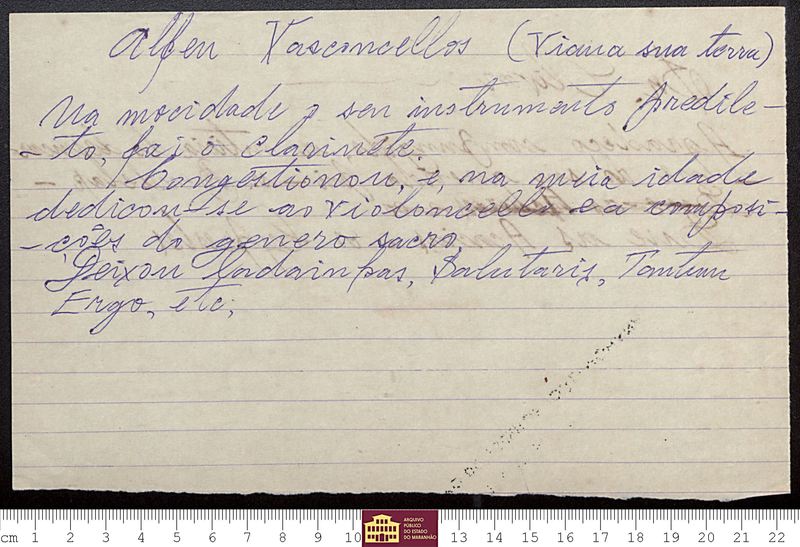 Alfeu Vasconcellos (Viana sua terra)
Na mocidade o seu instrumento predile-
-to, foi o clarinete.
Congestionou, e, na meia idade
dedicou-se ao violoncello e a composi-
-ções do genero sacro.
Deixou ladainhas, Salutaris, Tantum
Ergo, etc.
cm 1 2 3 4 5 6 7 8 9 10 13 14 15 16 17 18 19 20 21 22
ARQUIVO
PÚBLICO
DO ESTADO
DO MARANHÃO